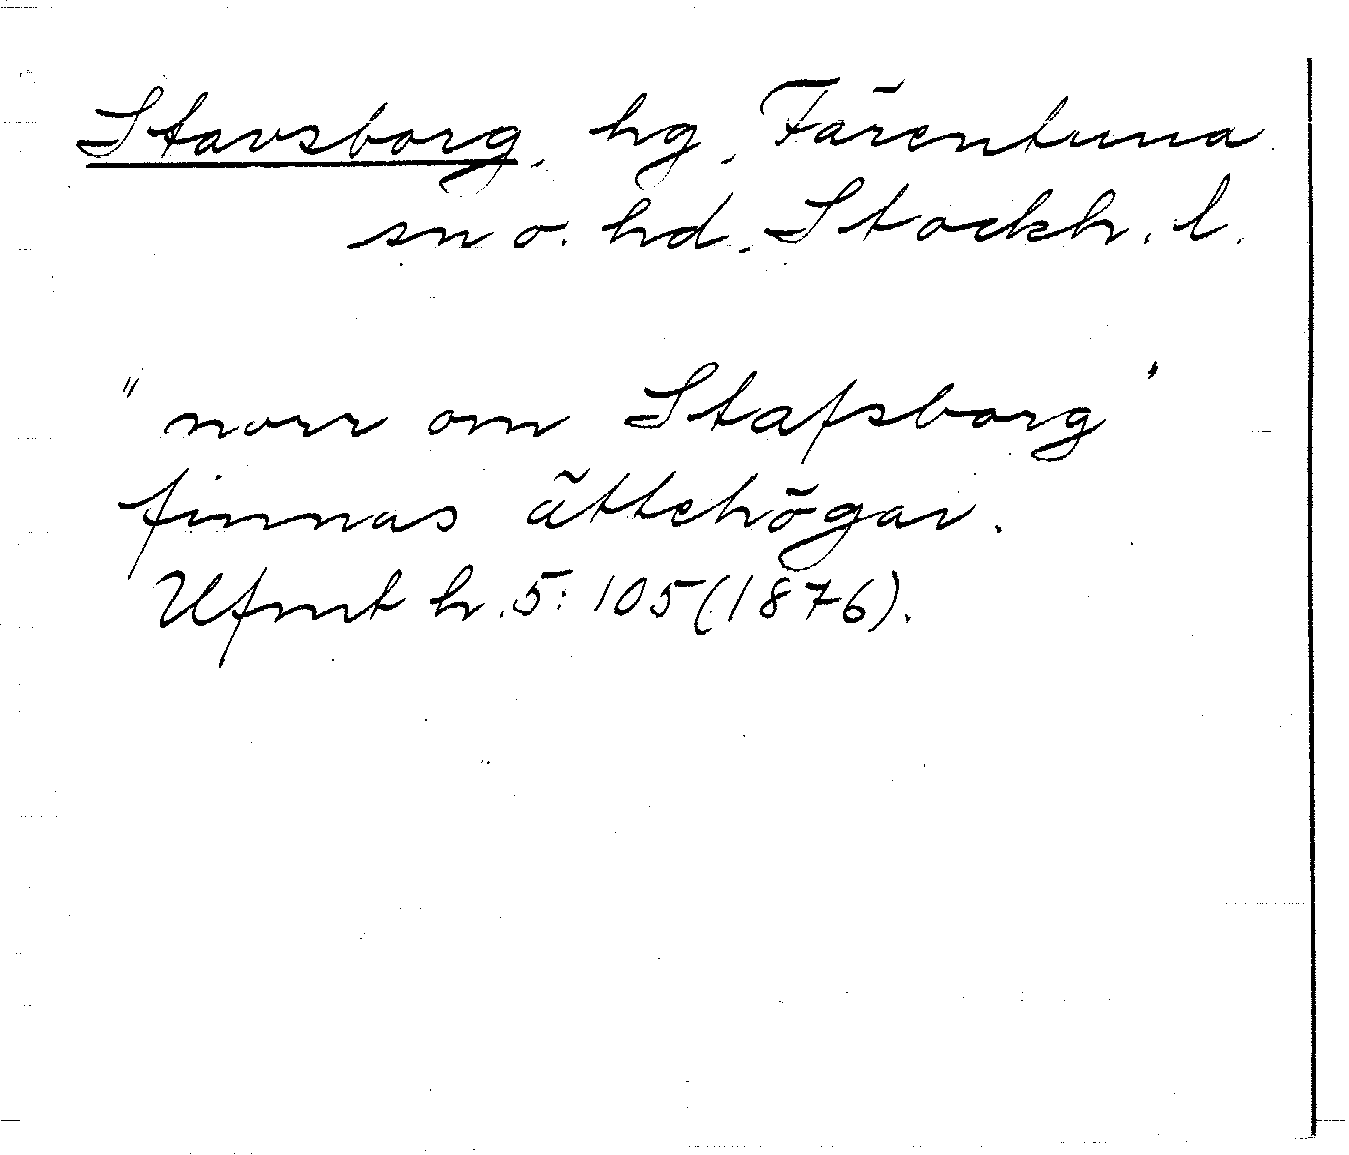 Stavsborg, hg, Färentuna
sn o. hd. Stockh. l.
"norr om Stafsborg"
finnas ättehögar.
Ufmt h. 5: 105 (1876).